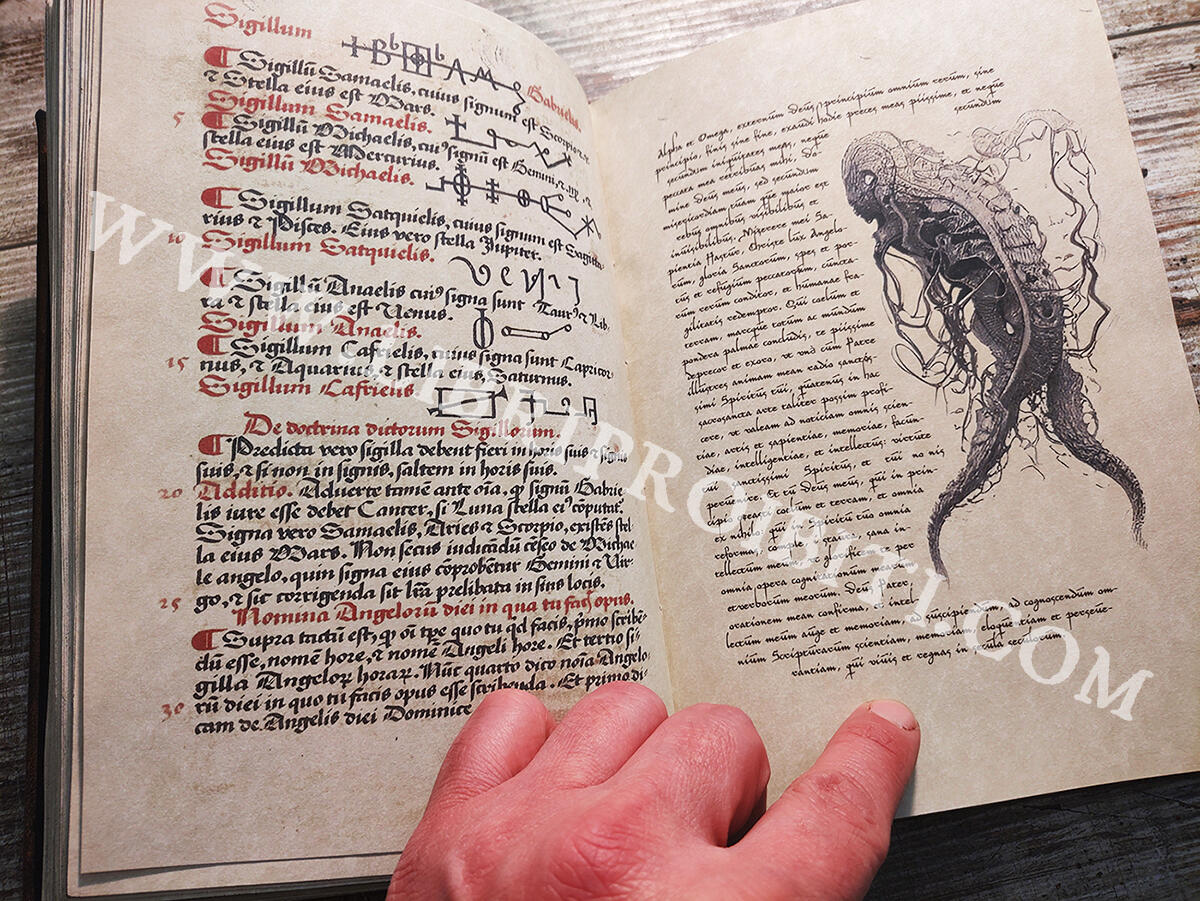 Sigillum
Gabrielis.
¶ Sigillū Samaelis, cuius signum est Scorpio, &
& Stella eius est Mars.
Sigillum Samaelis.
5 ¶ Sigillū Michaelis, cui⁹ signū est Gemini, &
stella eius est Mercurius.
Sigillū Michaelis.
¶ Sigillum Satquielis, cuius signum est Sagitta-
rius & Pisces. Eius vero stella Jupiter.
10 Sigillum Satquielis.
¶ Sigillū Anaelis cui⁹ signa sunt Taur⁹ & Lib-
ra & stella eius est Venus.
Sigillum Anaelis.
¶ Sigillum Cafrielis, cuius signa sunt Capricor-
15 nus, & Aquarius, & stella eius, Saturnus.
Sigillum Cafrielis
De doctrina dictorum Sigillorum.
¶ Predicta vero sigilla debent fieri in horis suis & signis
suis, & si non in signis, saltem in horis suis.
20 Additio. Adverte tamē ante oīa, qꝫ signū Gabrie-
lis iure esse debet Cancer, si Luna stella ei⁹ cōputat².
Signa vero Samaelis, Aries & Scorpio, existēs stel-
la eius Mars. Non secus iudicādū cēseo de Michae
le angelo, quin signa eius cōprobētur Gemini & Vir-
25 go, & sic corrigenda sit lr̄a prelibata in suis locis.
Nomina Angelorū diei in qua tu facis opus.
¶ Supra tactū est, qꝫ oī tpe quo tu qd facis, pꝛmo scribē-
dū esse, nomē hore, & nomē Angeli hore. Et tertio si-
gilla Angeloꝝ horaꝝ. Nūc quarto dico noīa Angelo
30 rū diei in quo tu facis opus esse scribenda. Et primo di-
cam de Angelis diei Dominice
Alpha et Omega, aeternum Deus, principium omnium rerum, sine
principio, finis sine fine, exaudi hodie preces meas piissime, et neque
secundum
secundum iniquitates meas, neque
peccata mea retribuas mihi, Do-
mine Deus meus, sed secundum
misericordiam tuam quae maior est
rebus omnibus visibilibus et
invisibilibus. Miserere mei Sa-
pientia Patris, Christe lux Angelo-
rum, gloria Sanctorum, spes et por-
tus et refugium peccatorum, cuncta-
rum rerum conditor, et humanae fra-
gilitatis redemptor. Qui coelum et
terram, marque totum ac mundum
pondera palmae concludis, te piissime
deprecor et exoro, ut una cum Patre
illustres animam meam radio sanctis-
simi Spiritus tui, quatenus in hac
sacrosancta arte taliter possim profi-
cere, ut valeam ad noticiam omnis scien-
tiae, artis et sapientiae, memoriae, facun-
diae, intelligentiae, et intellectus: virtute
tui sanctissimi Spiritus, et tui no nis
pervenire. Et tu Deus meus, qui in prin-
cipio creasti coelum et terram, et omnia
ex nihilo, qui in Spiritu tuo omnia
reformas, comple, instaura, sana in-
tellectum meum, ut glorificem te per
omnia opera cogitationum mearum
et verborum meorum. Deus Pater,
orationem meam confirma, et intel-
lectum meum auge et memoriam, ad suscipiendum, ad cognoscendum om-
nium Scripturarum scientiam, memoriam, eloquentiam et perseve-
rantiam, qui vivis et regnas in secula seculorum
WWW.LIBRIPROIBITI.COM